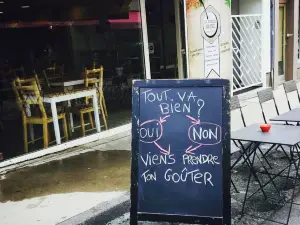 TOUT VA
BIEN ?
OUI NON
VIENS PRENDRE
TON GOÛTER